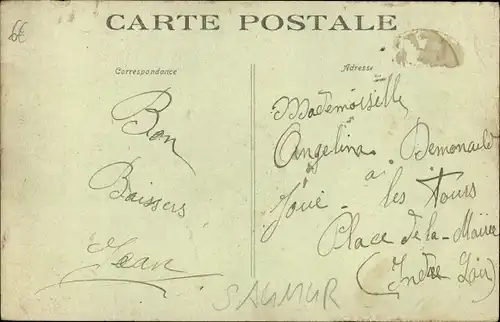 6€
CARTE POSTALE
Correspondance
Adresse
Bon
Baisers
Jean
Mademoiselle
Angelina
à
Joué - les Tours
Place de la - Mairie
(Indre Loir)
SAUMUR